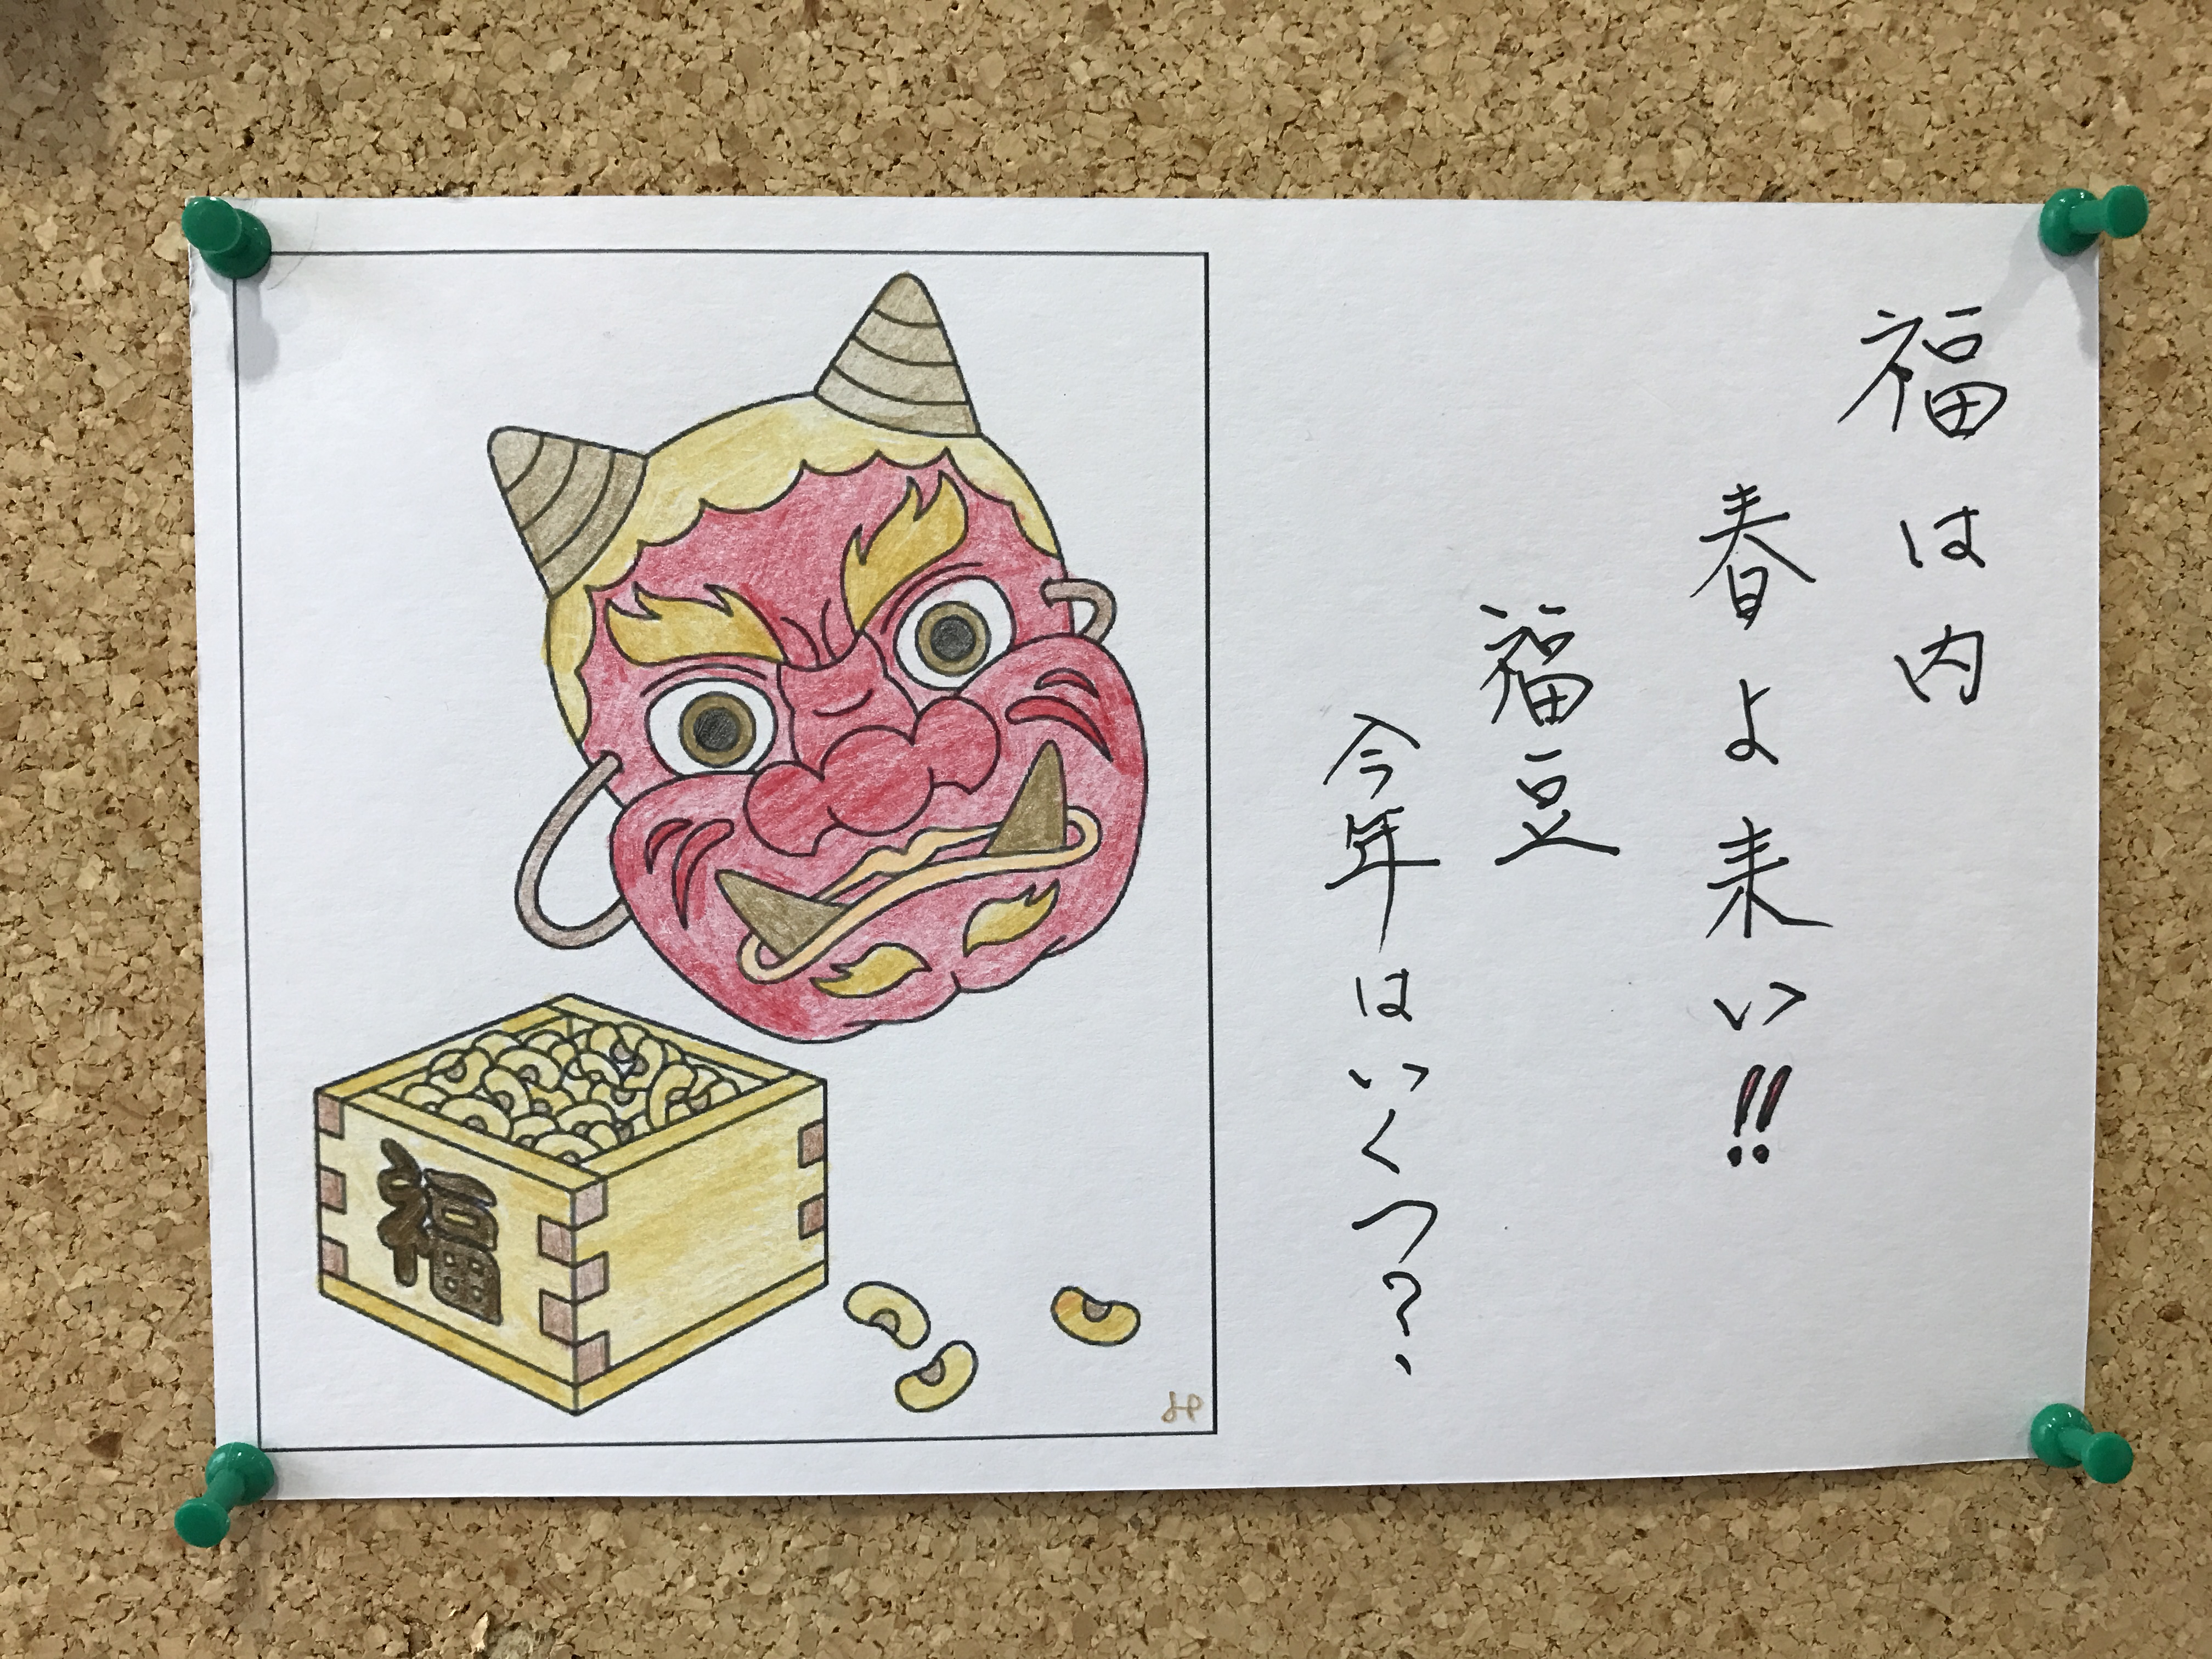 福は内
春よ来い!!
福豆
今年はいくつ?
福